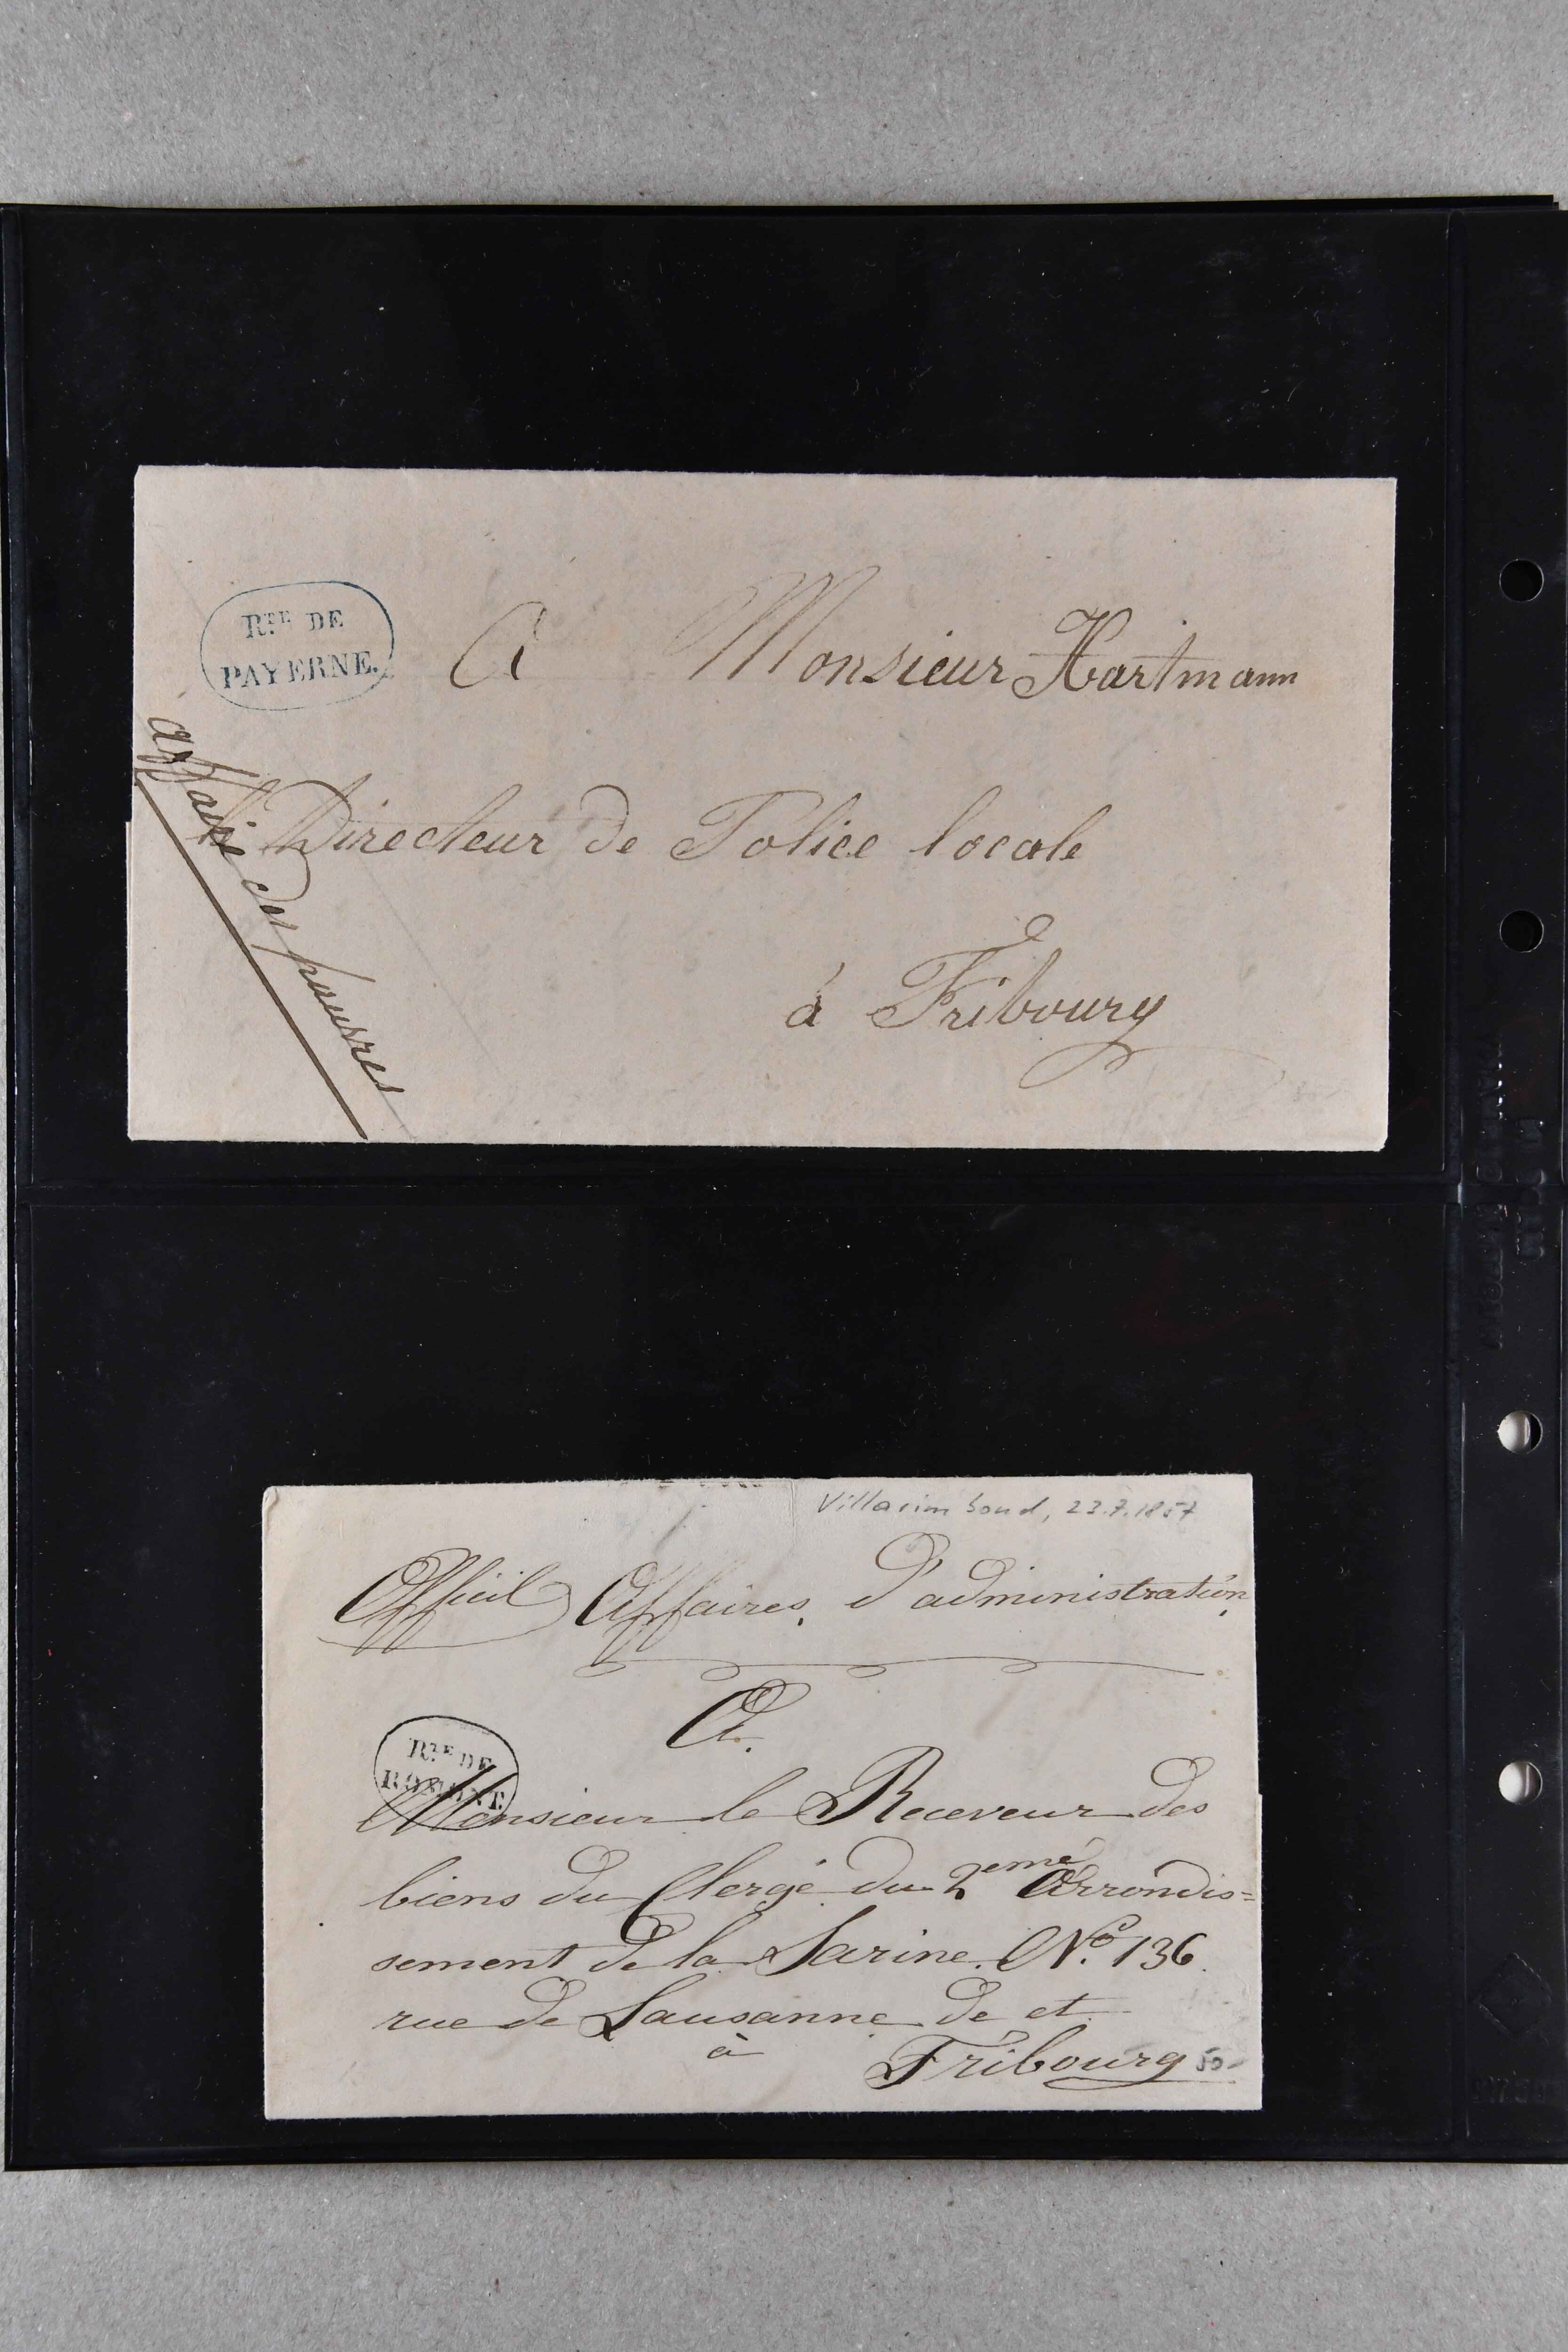 RTE DE
PAYERNE.
A Monsieur Hartmann
Directeur de Police locale
à Fribourg
affaire des pauvres
Villarimboud, 23.7.1857
Officiel Affaires d'administration
A.
RTE DE
ROMONT
Monsieur le Receveur des
biens du Clergé du 2eme Arrondis=
sement de la Sarine. No. 136.
rue de Lausanne de et
à
Fribourg
50-